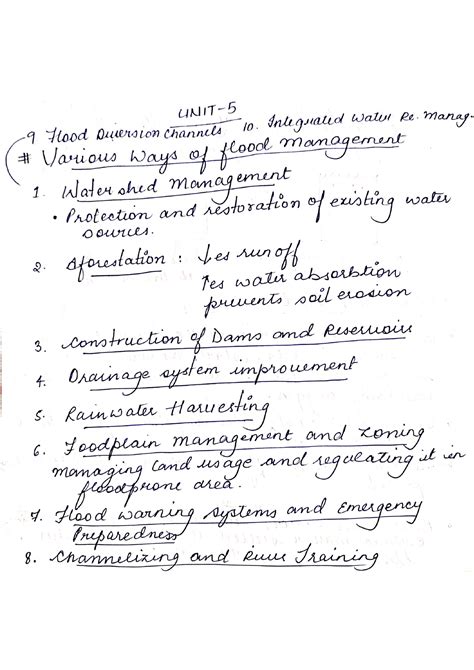 UNIT-5
9 Flood Diversion Channels 10. Integrated Water Re. Manag-
# Various Ways of flood management
1. Watershed Management
• Protection and restoration of existing water
sources.
2. Aforestation : ↓es runoff
↑es water absorbtion
prevents soil erosion
3. Construction of Dams and Reservoirs
4. Drainage system improvement
5. Rainwater Harvesting
6. Foodplain management and zoning
managing land usage and regulating it in
floodprone area.
7. Flood warning systems and Emergency
Preparedness
8. Channelizing and River Training